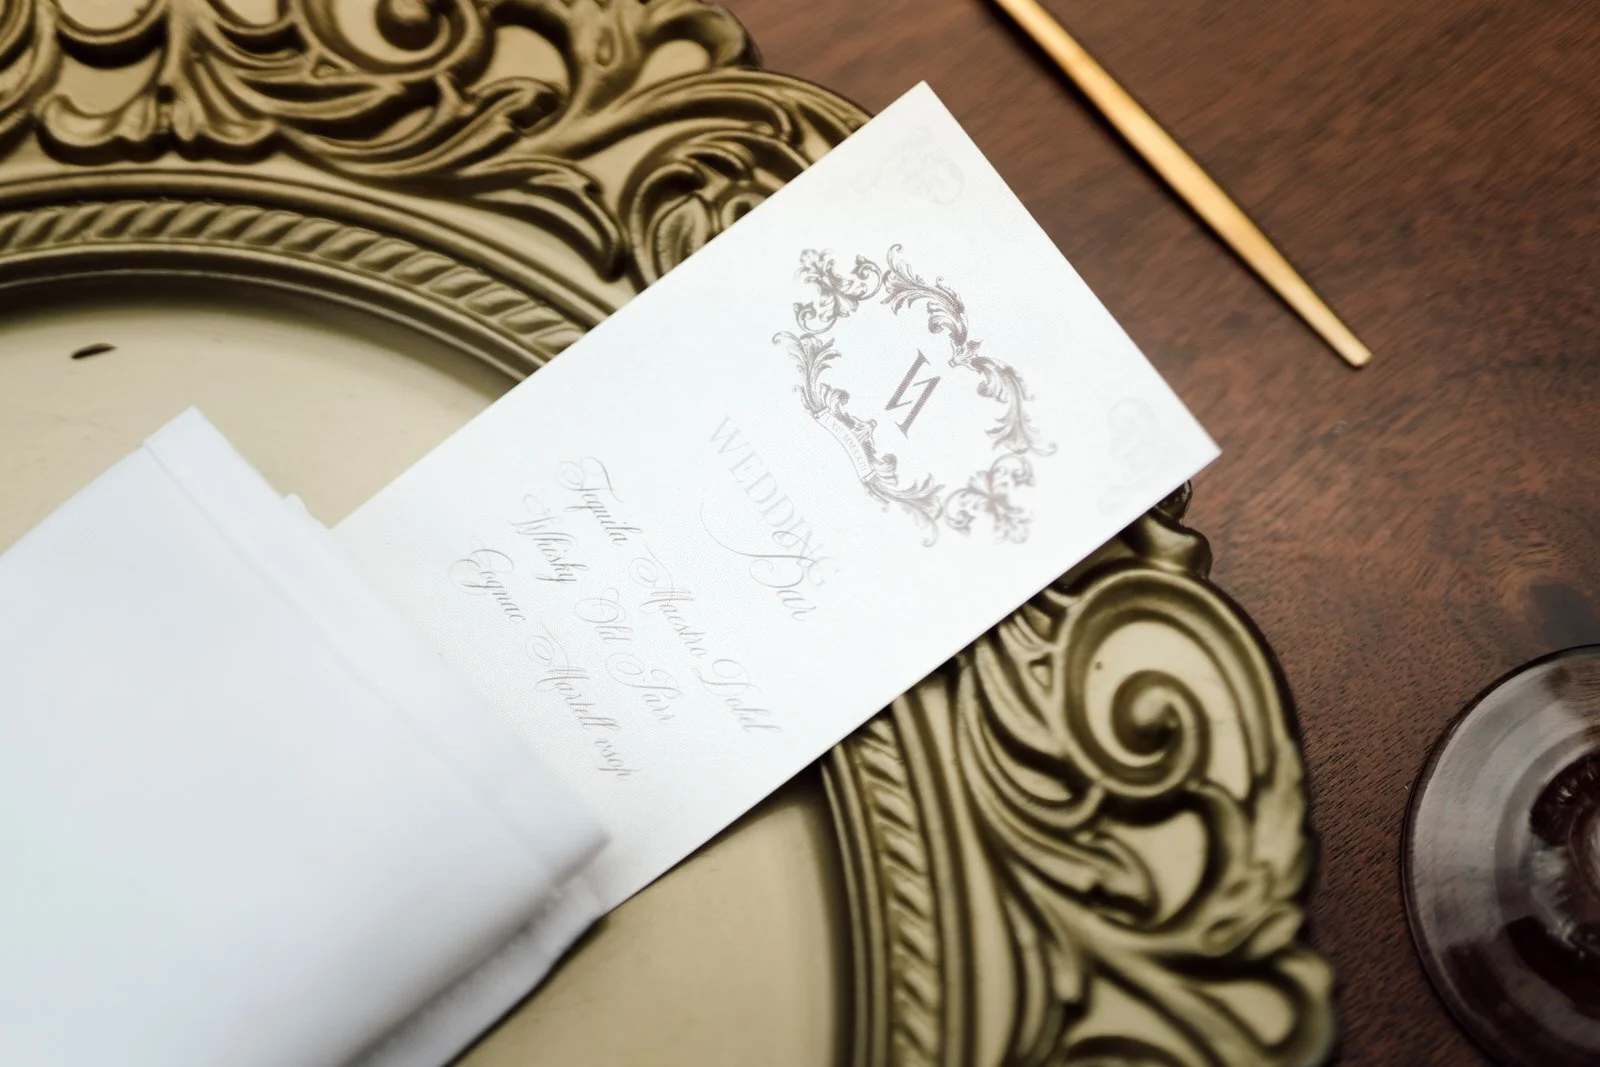 WEDDING
Bar
Tequila Maestro Dobel
Whisky Old Parr
Cognac Martell vsop